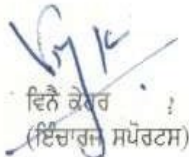 ਵਿਨੈ ਕੁਮਾਰ
(ਇੰਚਾਰਜ ਸਪੋਰਟਸ)